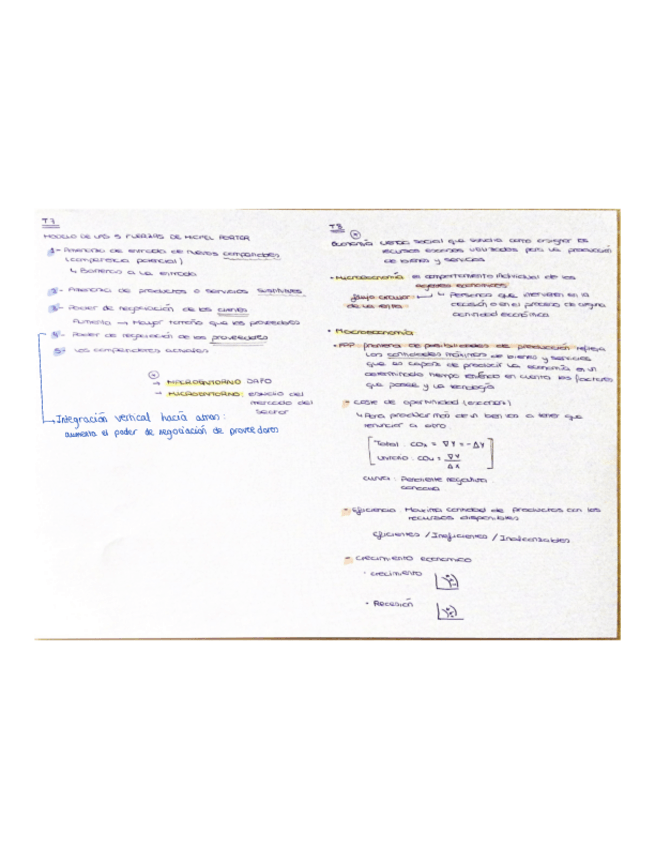 T7
MODELO DE LAS 5 FUERZAS DE MICHEL PORTER
1- Amenaza de entrada de nuevos competidores
(competencia potencial)
↳ Barreras a la entrada
2- Amenaza de productos o servicios sustitutos
3- Poder de negociación de los clientes
Aumenta → Mayor tamaño que los proveedores
4- Poder de negociación de los proveedores
5- Los competidores actuales
→ MACROENTORNO DAFO
→ MICROENTORNO: estudio del
mercado del
sector
Integración vertical hacia atras:
aumenta el poder de negociación de proveedores
T8
Economía ciencia social que estudia como asignar los
recursos escasos utilizados para la producción
de bienes y servicios
• Microeconomía el comportamiento individual de los
agentes económicos
flujo circular
de la renta
Personas que intervienen en la
decisión o en el proceso de alguna
actividad económica
• Macroeconomía
- FPP frontera de posibilidades de producción refleja
las cantidades máximas de bienes y servicios
que es capaz de producir la economía en un
determinado tiempo teniendo en cuenta los factores
que posee y la tecnología
- coste de oportunidad (escasez)
↳ Para producir más de un bien vas a tener que
renunciar a otro
Total: COx = ∇Y = -ΔY
Unitario: COu = ∇Y
ΔX
curva: Pendiente negativa
concava
- Eficiencia Maxima cantidad de productos con los
recursos disponibles
Eficientes / Ineficientes / Inalcanzables
- crecimiento economico
• crecimiento
• Recesión